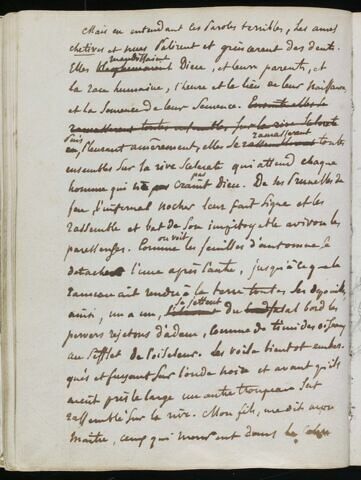 Mais en entendant ces paroles terribles, les ames
chetives et nues palirent et grincerent des dents.
maudissaient
Elles blasphemaient Dieu, et leurs parents, et
la race humaine, l'heure et le lieu de leur naissance,
et la semence de leur semence. Ensuite elles se
ramasserent toutes ensemble sur la rive
puis, pleurant amerement, elles se ramasserent toutes
ensemble sur la rive scelerate qui attend chaque
homme qui ne craint pas Dieu. De ses prunelles de
feu, l'infernal nocher leur fait signe et les
rassemble et bat de son impitoyable aviron les
paresseuses. Comme on voit les feuilles d'automne se
detacher l'une après l'autre, jusqu'à ce que le
rameau ait rendu à la terre toutes ses depouilles,
ainsi, un a un, se jettent du fatal bord les
pervers rejetons d'adam, comme de timides oiseaux
au sifflet de l'oiseleur. Les voila bientot embar-
qués et fuyant sur l'onde noire et avant qu'ils
aient pris le large un autre troupeau s'est
rassemblé sur la rive. Mon fils, me dit mon
maitre, ceux qui meurent dans la colere